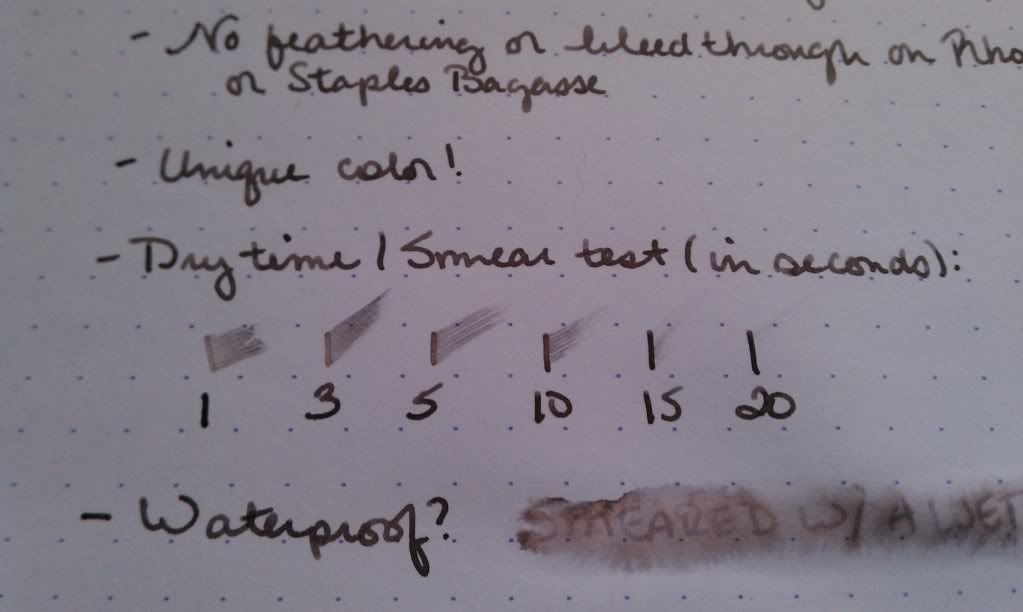 - No feathering or bleedthrough on Rho
or Staples Bagasse
- Unique color!
- Dry time / Smear test (in seconds):
1 3 5 10 15 20
- Waterproof? SMEARED W/ A WET